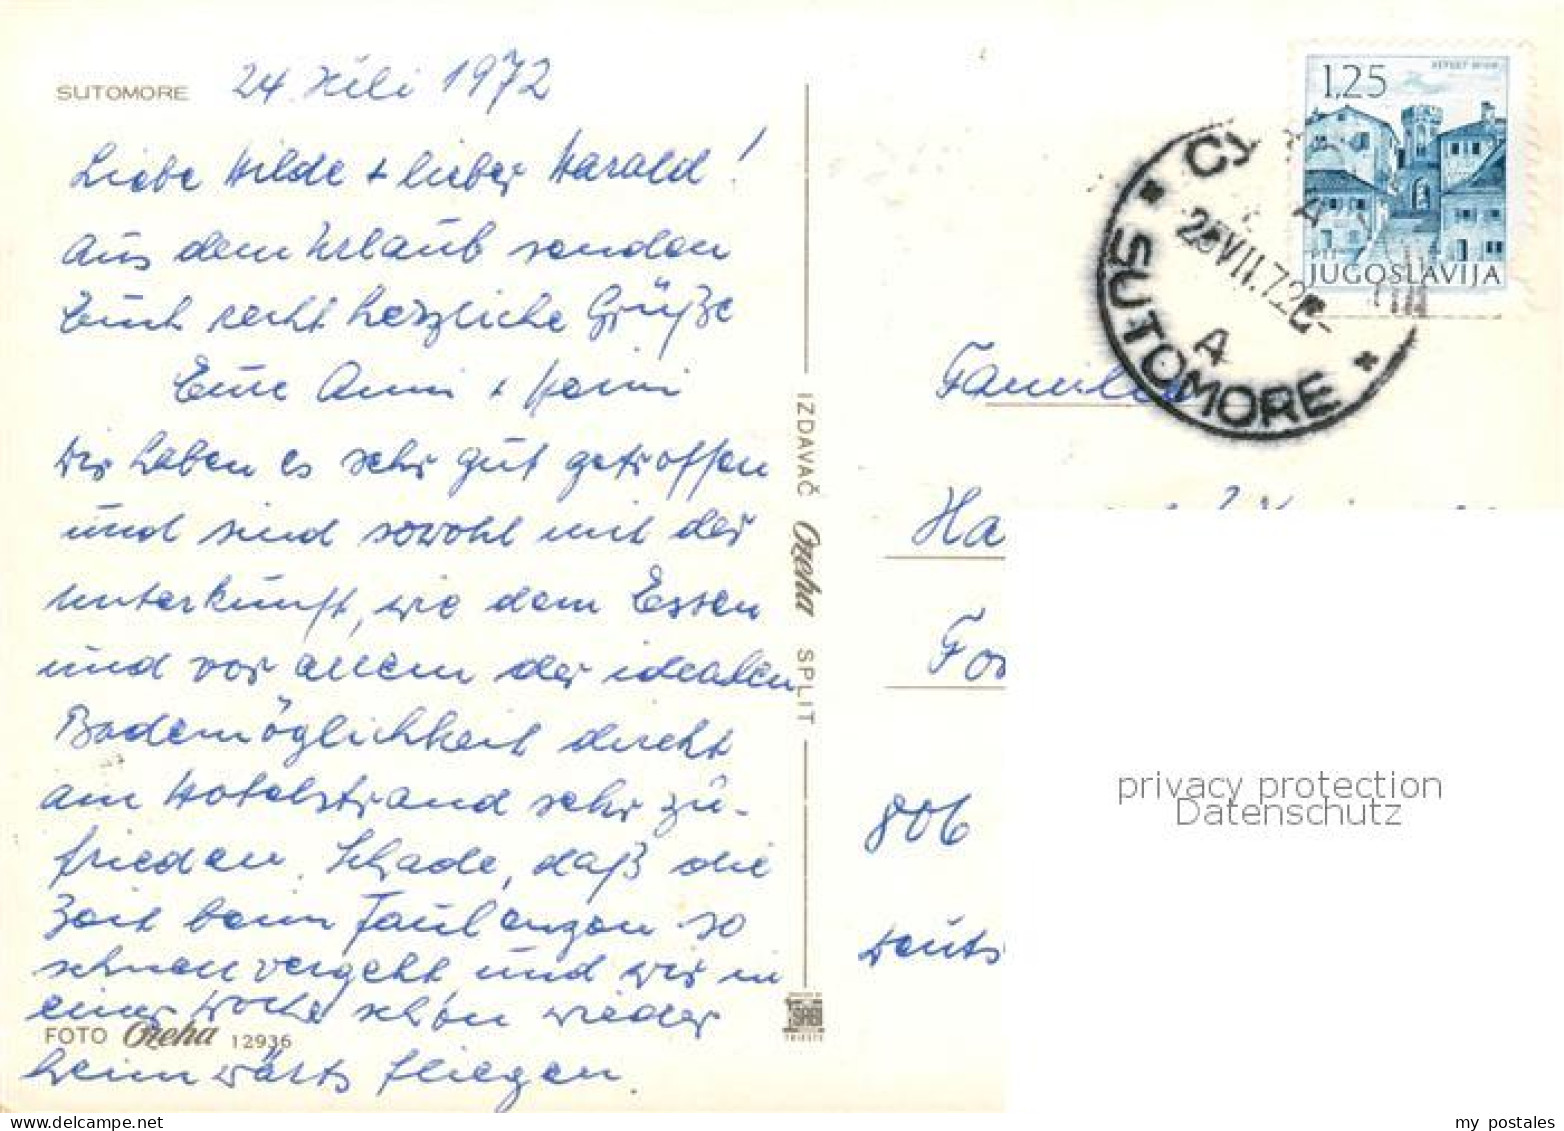 SUTOMORE 24. Jüli 1972
Liebe Hilde + lieber Harald!
Aus dem Urlaub senden
Euch recht herzliche Grüße
Eure Anni + Heini
Wir haben es sehr gut getroffen
und sind sowohl mit der
Unterkunft, wie dem Essen
und vor allem der idealen
Bademöglichkeit direkt
am Hotelstrand sehr zu-
frieden. Schade, daß die
Zeit beim Faulenzen so
schnell vergeht und wir in
einer Woche schon wieder
heimwärts fliegen.
FOTO Ozeha 12936
IZDAVAČ Ozeha SPLIT
TRIESTE
1,25
JUGOSLAVIJA
SUTOMORE
25.VII.72
A
Familie
Ha
For
806
Deuts
privacy protection
Datenschutz
my postales